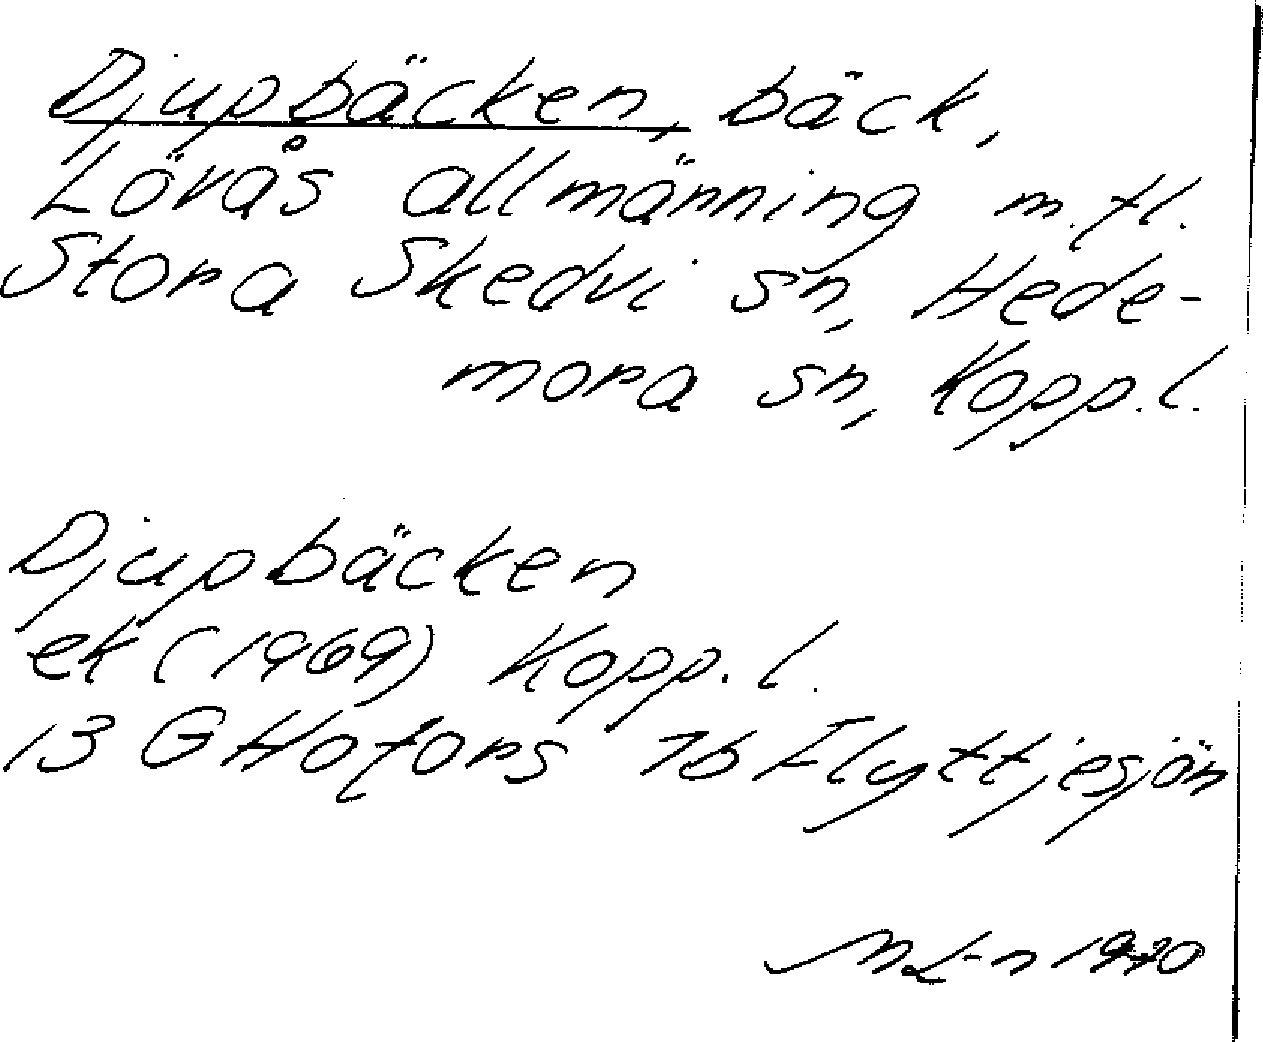 Djupbäcken, bäck,
Lövås allmänning m.fl.
Stora Skedvi sn, Hede-
mora sn, Kopp.l.
Djupbäcken
ek (1969) Kopp.l.
13 G Hofors 7b Flyttjesjön
ML-n 1970